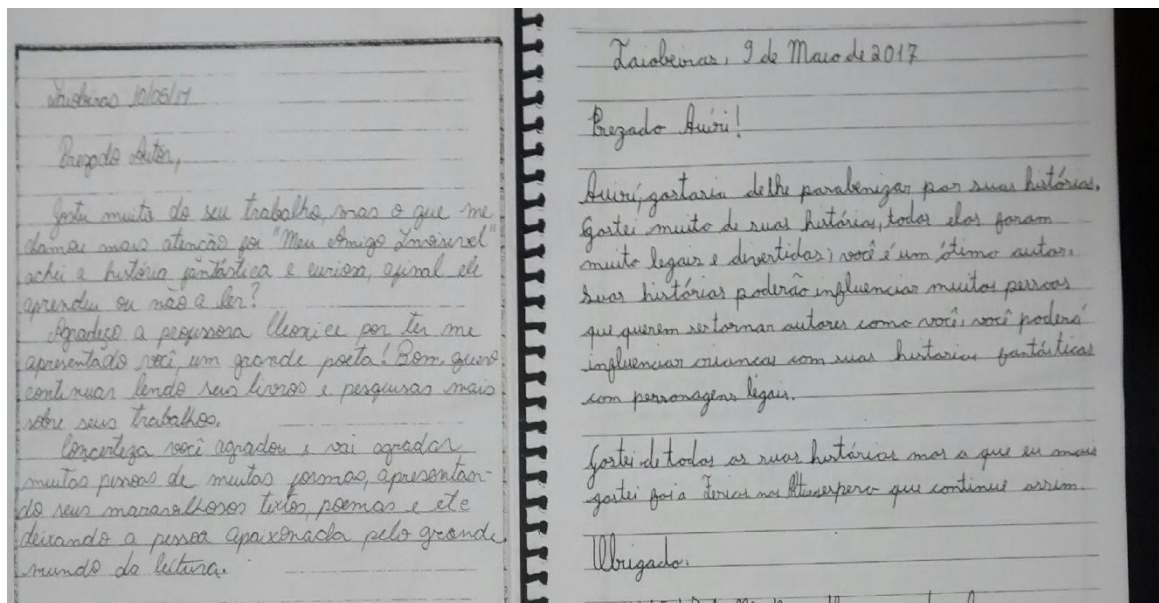 Taiobeiras 10/05/17
Prezado Autor,
Gostei muito do seu trabalho, mas o que me
chamou mais atenção foi "Meu Amigo Invisivel"
achei a história fantástica e curiosa, afinal ele
aprendeu ou não a ler?
Agradeço a professora Cleonice por ter me
apresentado você, um grande poeta! Bom, quero
continuar lendo seus livros e pesquisas mais
sobre seus trabalhos.
Concerteza você agradou e vai agradar
muitas pessoas de muitas formas, apresentan-
do seus maravalhosos textos, poemas e etc
deixando a pessoa apaixonada pelo grande
mundo da leitura.
Taiobeiras, 9 de Maio de 2017
Prezado Auiri!
Auiri, gostaria delhe parabenizar por suas histórias.
Gostei muito de suas histórias, todas elas foram
muito legais e divertidas; você é um ótimo autor.
Suas histórias poderão influenciar muitas pessoas
que querem sertornar autores como você; você poderá
influenciar crianças com suas historias fantásticas
com personagens légais.
Gostei de todas as suas histórias mas a que eu mais
gostei foi a Ferias nas espero que continue assim.
Obrigado.